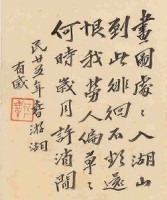 畫圖處〻入湖山
到此徘徊不欲還
恨我勞人偏草〻
何時歲月許消閒
民廿五年春游湖
有感